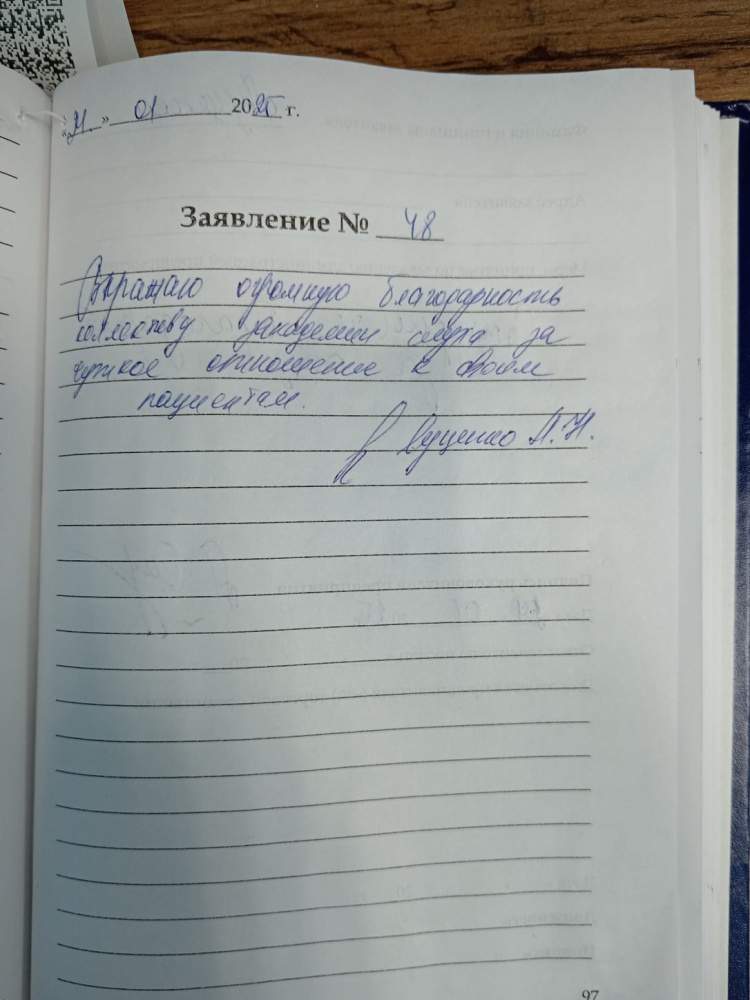 «21» 01 2025 г.
Заявление № 48
Выражаю огромную благодарность
коллективу академии слуха за
чуткое отношение к своим
пациентам.
Луценко Л.Н.
97